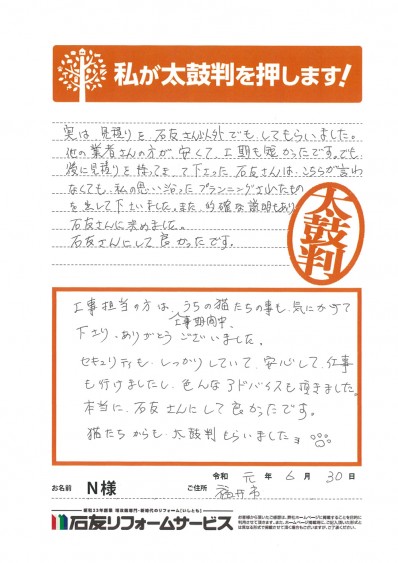 私が太鼓判を押します!
実は、見積りを、石友さん以外でも、してもらいました。
他の業者さんの方が、安くて、工期も短かったです。でも、
後に見積りを持って来て下さった、石友さんは、こちらが言わ
なくても、私の思い沿ったプランニングされたもの
を出して下さいました。また、的確な説明もあり
石友さんに決めました。
石友さんにして良かったです。
太鼓判
工事担当の方は、うちの猫たちの事も、気にかけて
工事期間中、
下さり、ありがとうございました。
セキュリティも、しっかりしていて、安心して、仕事
も行けましたし、色んなアドバイスも頂きました。
本当に、石友さんにして良かったです。
猫たちからも、太鼓判もらいましたョ
令和 元 年 6 月 30 日
お名前 N様 ご住所 福井市
昭和33年創業 増改築専門・新時代のリフォーム【いしとも】
石友リフォームサービス